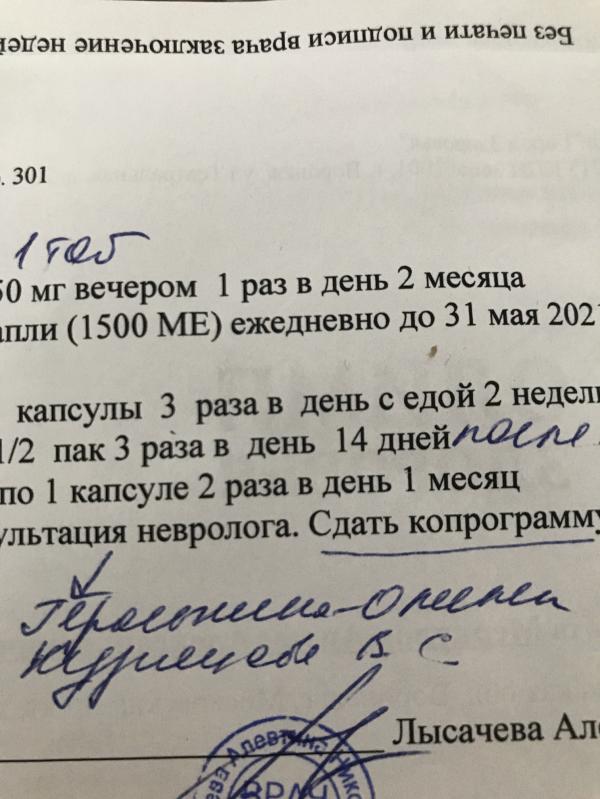 Без печати и подписи врача заключение недей
. 301
1 таб
50 мг вечером 1 раз в день 2 месяца
апли (1500 МЕ) ежедневно до 31 мая 2021
капсулы 3 раза в день с едой 2 недели
1/2 пак 3 раза в день 14 дней после
по 1 капсуле 2 раза в день 1 месяц
ультация невролога. Сдать копрограмму
В С
Лысачева Але
ева Алевтина Нико
ВРАЧ